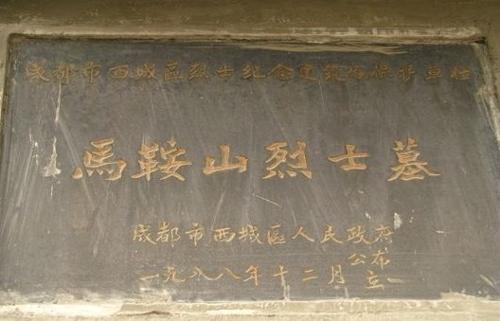 成都市西城区烈士纪念建筑物保护单位
馬鞍山烈士墓
成都市西城区人民政府
公布
一九八八年十二月 立